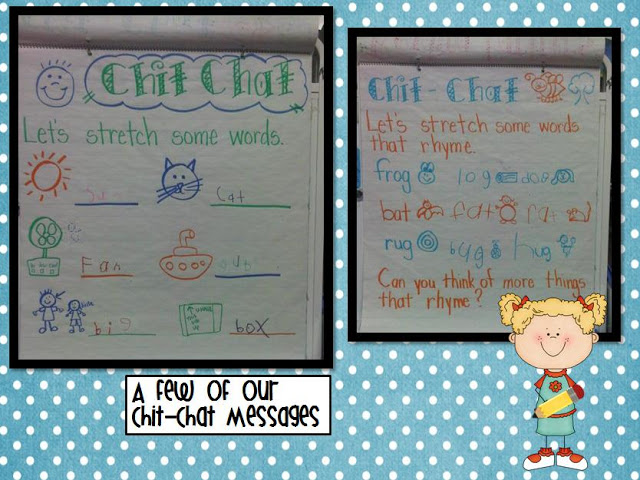 Chit Chat
Let's stretch some words.
Cat
Fan
big
box
Chit-Chat
Let's stretch some words
that rhyme.
frog log dog
bat fat rat
rug bug hug
Can you think of more things
that rhyme?
A few of our
Chit-Chat Messages